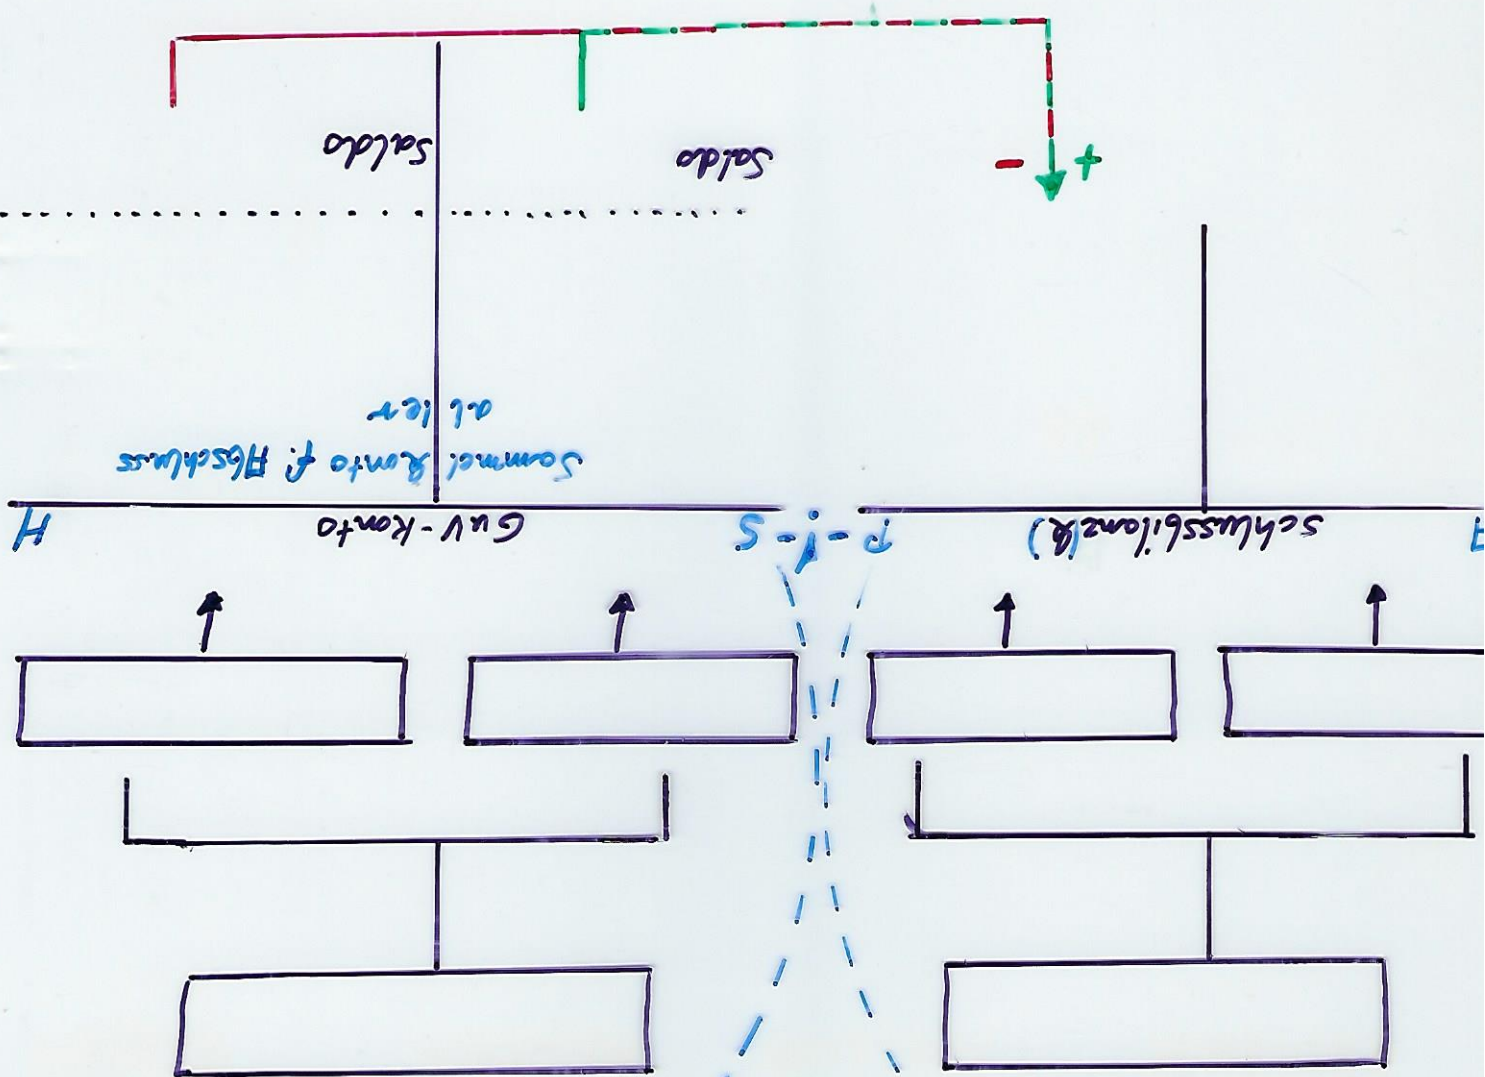 A Schlussbilanz(k) P - ! - S GuV-Konto H
Sammel Konto f. Abschluss
aller
+ - Saldo Saldo